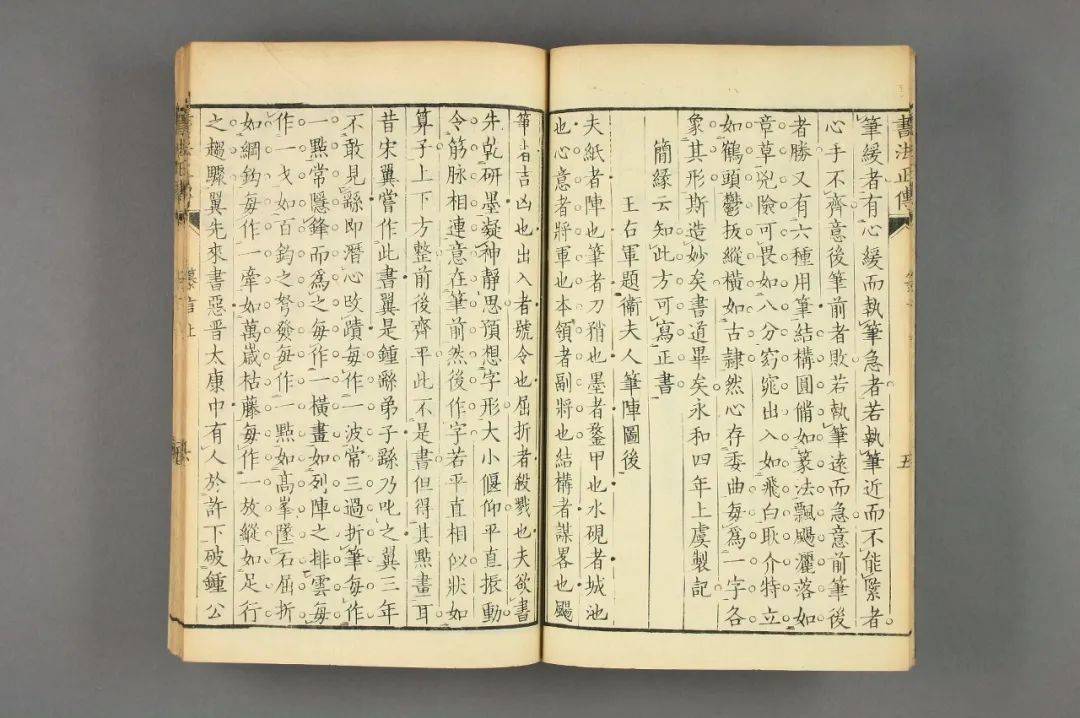 書法正傳
五
筆緩者有心緩而執筆急者若執筆近而不能緊者
心手不齊意後筆前者敗若執筆遠而急意前筆後
者勝又有六種用筆結構圓備如篆法飄颺灑落如
章草兇險可畏如八分窈窕出入如飛白耿介特立
如鶴頭鬱拔縱橫如古隷然心存委曲每爲一字各
象其形斯造妙矣書道畢矣永和四年上虞製記
簡緣云知此方可寫正書
王右軍題衞夫人筆陣圖後
夫紙者陣也筆者刀矟也墨者鍪甲也水硯者城池
也心意者將軍也本領者副將也結構者謀畧也颺
筆者吉凶也出入者號令也屈折者殺戮也夫欲書
先乾研墨凝神靜思預想字形大小偃仰平直振動
令筋脉相連意在筆前然後作字若平直相似狀如
算子上下方整前後齊平此不是書但得其點畫耳
昔宋翼嘗作此書翼是鍾繇弟子繇乃叱之翼三年
不敢見繇即潛心改蹟每作一波常三過折筆每作
一㸃常隱鋒而爲之每作一橫畫如列陣之排雲每
作一戈如百鈞之弩發每作一點如高峯墜石屈折
如綱鉤每作一牽如萬歲枯藤每作一放縱如足行
之趨驟翼先來書惡晉太康中有人於許下破鍾公
纂言上